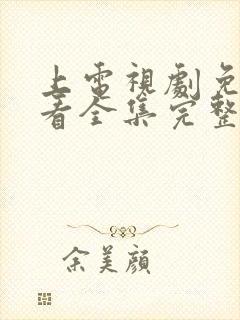 上電視劇免
看全集完整
余美顏